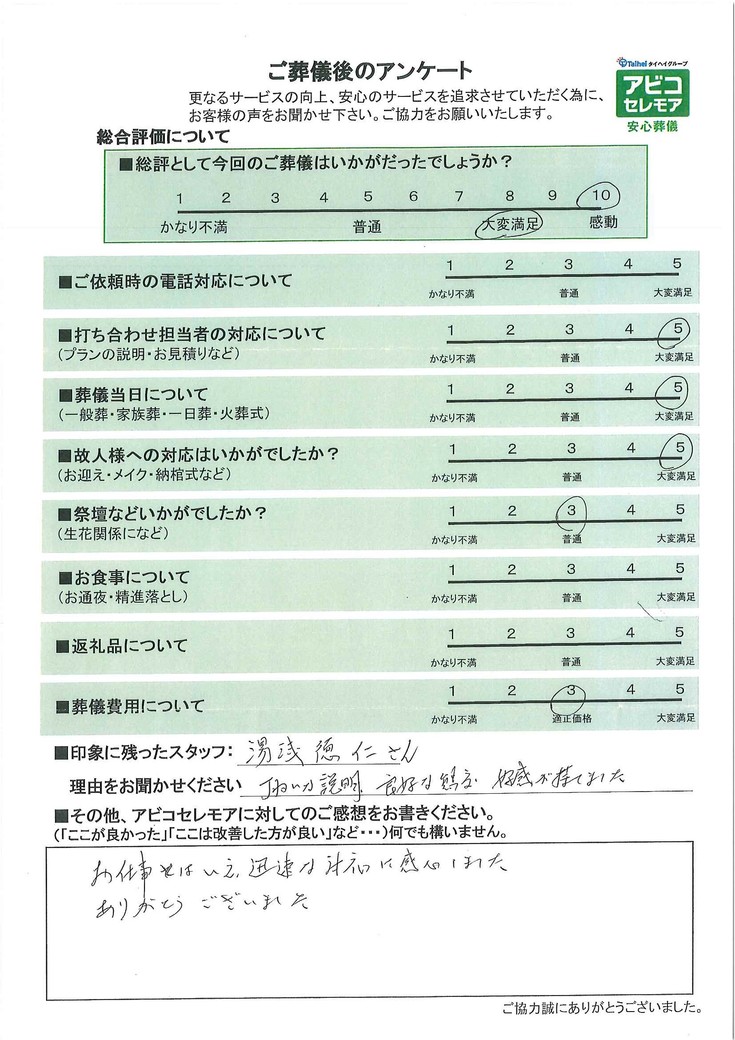 ご葬儀後のアンケート
Taihei タイヘイグループ
アビコ
セレモア
安心葬儀
更なるサービスの向上、安心のサービスを追求させていただく為に、
お客様の声をお聞かせ下さい。ご協力をお願いいたします。
総合評価について
■総評として今回のご葬儀はいかがだったでしょうか?
1 2 3 4 5 6 7 8 9 10
かなり不満 普通 大変満足 感動
■ご依頼時の電話対応について
1 2 3 4 5
かなり不満 普通 大変満足
■打ち合わせ担当者の対応について
(プランの説明・お見積りなど)
1 2 3 4 5
かなり不満 普通 大変満足
■葬儀当日について
(一般葬・家族葬・一日葬・火葬式)
1 2 3 4 5
かなり不満 普通 大変満足
■故人様への対応はいかがでしたか?
(お迎え・メイク・納棺式など)
1 2 3 4 5
かなり不満 普通 大変満足
■祭壇などいかがでしたか?
(生花関係になど)
1 2 3 4 5
かなり不満 普通 大変満足
■お食事について
(お通夜・精進落とし)
1 2 3 4 5
かなり不満 普通 大変満足
■返礼品について
1 2 3 4 5
かなり不満 普通 大変満足
■葬儀費用について
1 2 3 4 5
かなり不満 適正価格 大変満足
■印象に残ったスタッフ: 湯浅 徳仁さん
理由をお聞かせください 丁ねいな説明、良好な態度 好感が持てました
■その他、アビコセレモアに対してのご感想をお書きください。
(「ここが良かった」「ここは改善した方が良い」など・・・)何でも構いません。
お仕事とはいえ、迅速な対応に感心しました
ありがとうございました
ご協力誠にありがとうございました。